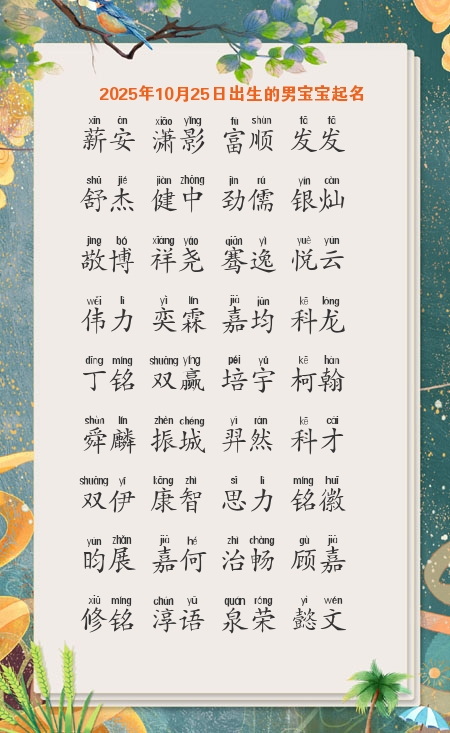 2025年10月25日出生的男宝宝起名
xīn ān xiāo yǐng fù shùn fā fā
薪安 潇影 富顺 发发
shū jié jiàn zhōng jìn rú yín càn
舒杰 健中 劲儒 银灿
jìng bó xiáng yáo qiān yì yuè yún
敬博 祥尧 骞逸 悦云
wěi lì yì lín jiā jūn kē lóng
伟力 奕霖 嘉均 科龙
dīng míng shuāng yíng péi yǔ kē hàn
丁铭 双赢 培宇 柯翰
shùn lín zhèn chéng yì rán kē cái
舜麟 振城 羿然 科才
shuāng yī kāng zhì sī lì míng huī
双伊 康智 思力 铭徽
yún zhǎn jiā hé zhì chàng gù jiā
昀展 嘉何 治畅 顾嘉
xiū míng chún yǔ quán róng yì wén
修铭 淳语 泉荣 懿文